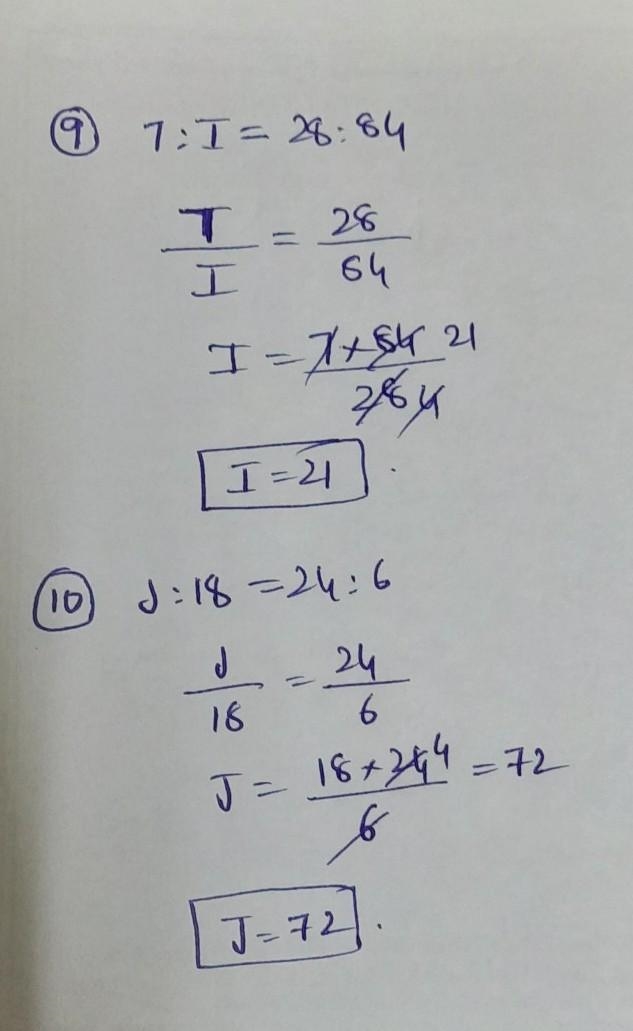 9 7:I = 28:84
7/I = 28/84
I = 7×84 21/28 4
I = 21.
10 J:18 = 24:6
J/18 = 24/6
J = 18×24 4/6 = 72
J = 72.